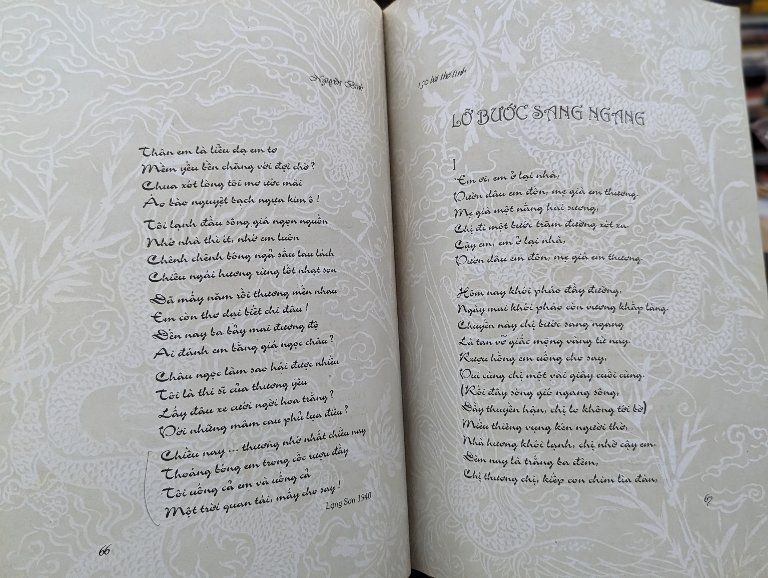 Nguyễn Bính
Thân em là liễu dạ em tơ
Mềm yếu bền chăng với đợi chờ?
Chua xót lòng tôi mơ ước mãi
Áo bào nguyệt bạch ngựa kim ô!
Tôi lạnh đầu sông giá ngọn nguồn
Nhớ nhà thì ít, nhớ em luôn
Chênh chênh bóng ngả sầu lau lách
Chiều ngái hương rừng lốt nhạt son
Đã mấy năm rồi thương mến nhau
Em còn thơ dại biết chi đâu!
Đến nay ba bảy mai đương độ
Ai đánh em bằng giá ngọc châu?
Châu ngọc làm sao hái được nhiều
Tôi là thi sĩ của thương yêu
Lấy đâu xe cưới ngời hoa trắng?
Với những mâm cau phủ lụa điều?
Chiều nay... thương nhớ nhất chiều nay
Thoáng bóng em trong cốc rượu đầy
Tôi uống cả em và uống cả
Một trời quan tái, mấy cho say!
Lạng Sơn 1940
66
thơ tình
LỠ BƯỚC SANG NGANG
I
Em ơi, em ở lại nhà,
Vườn dâu em đốn, mẹ già em thương.
Mẹ già một nắng hai sương,
Chị đi một bước trăm đường xót xa.
Cậy em, em ở lại nhà,
Vườn dâu em đốn, mẹ già em thương.
Hôm nay khói pháo đầy đường,
Ngày mai khói pháo còn vương khắp làng.
Chuyến này chị bước sang ngang
Là tan vỡ giấc mộng vàng từ nay.
Rượu hồng em uống cho say,
Vui cùng chị một vài giây cuối cùng.
(Rồi đây sóng gió ngang sông,
Đầy thuyền hận, chị lo không tới bờ)
Miếu thiêng vụng kén người thờ,
Nhà hương khói lạnh, chị nhờ cậy em.
Đêm nay là trắng ba đêm,
Chị thương chị, kiếp con chim lìa đàn,
67